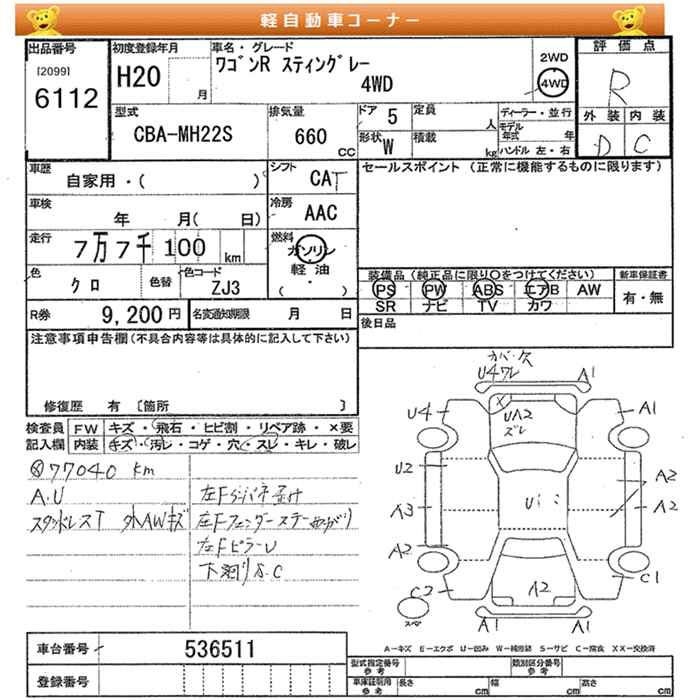 軽自動車コーナー
出品番号
[2099]
6112
初度登録年月
H20
月
車名・グレード
ワゴンR スティングレー
4WD
2WD
4WD
評価点
R
外装 内装
D C
型式
CBA-MH22S
排気量
660
CC
ドア 5
定員
人
形状 W
積載
kg
ディーラー・並行
モデル年式
年
ハンドル 左・右
車歴
自家用・( )
シフト
CAT
セールスポイント (正常に機能するものに限ります)
車検
年 月( 日)
冷房
AAC
走行
7万7千100 km
燃料
ガソリン
軽油
( ・ )
色
クロ
色替
色コード
ZJ3
装備品 (純正品に限り○をつけてください)
PS PW ABS エアB AW
SR ナビ TV カワ
新車保証書
有・無
R券
9,200 円
名変通知期限
月 日
後日品
注意事項申告欄(不具合内容等は具体的に記入して下さい)
修復歴 有 〔箇所 〕
検査員記入欄
FW キズ・飛石・ヒビ割・リペア跡・×要
内装 キズ・汚レ・コゲ・穴・スレ・キレ・破レ
77040 km
A.U
スタッドレスT 外AWキズ
左FピラーU
下廻りS.C
カバー欠
U4ワレ
A1
U4
UA2
ズレ
A1
U2
A3
A2
Ui
A2
A2
C2
A2
C1
スペア
A1
A1
A=キズ E=エクボ U=凹み W=補修跡 S=サビ C=腐食 XX=交換済
車台番号
536511
登録番号
型式指定番号
参考
類別区分番号
参考
車庫証明用
参考
長さ cm
幅 cm
高さ cm